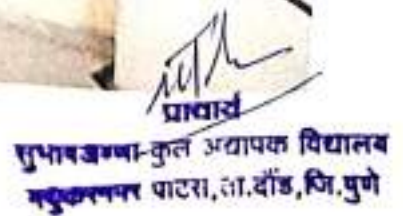 प्राचार्य
सुभाषअण्णा-कुल अध्यापक विद्यालय
पाटस, ता.दौंड, जि.पुणे